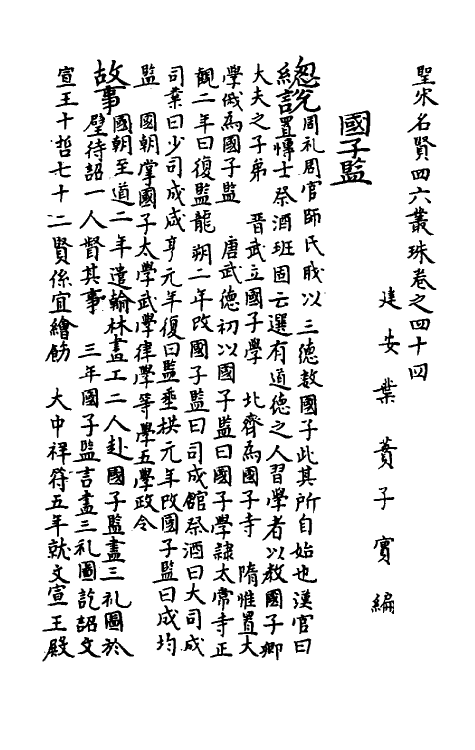 聖宋名賢四六叢珠卷之四十四
建安葉蕡子實編
國子監
總說周礼周官師氏職以三德教國子此其所自始也漢官曰
置博士祭酒班固云選有道德之人習學者以教國子卿
大夫之子弟 晋武立國子學 北齊為國子寺 隋惟置大
學俄為國子監 唐武德初以國子監曰國子學隸太常寺正
觀二年曰復監龍朔二年改國子監曰司成館祭酒曰大司成
司業曰少司成咸亨元年復曰監垂拱元年改國子監曰成均
監 國朝掌國子太學武學律學等學五學政令
故事國朝至道二年遣翰林畫工二人赴國子監畫三礼圖於
壁待詔一人督其事 三年國子監言畫三礼圖訖詔文
宣王十哲七十二賢係宜繪飾 大中祥符五年就文宣王殿